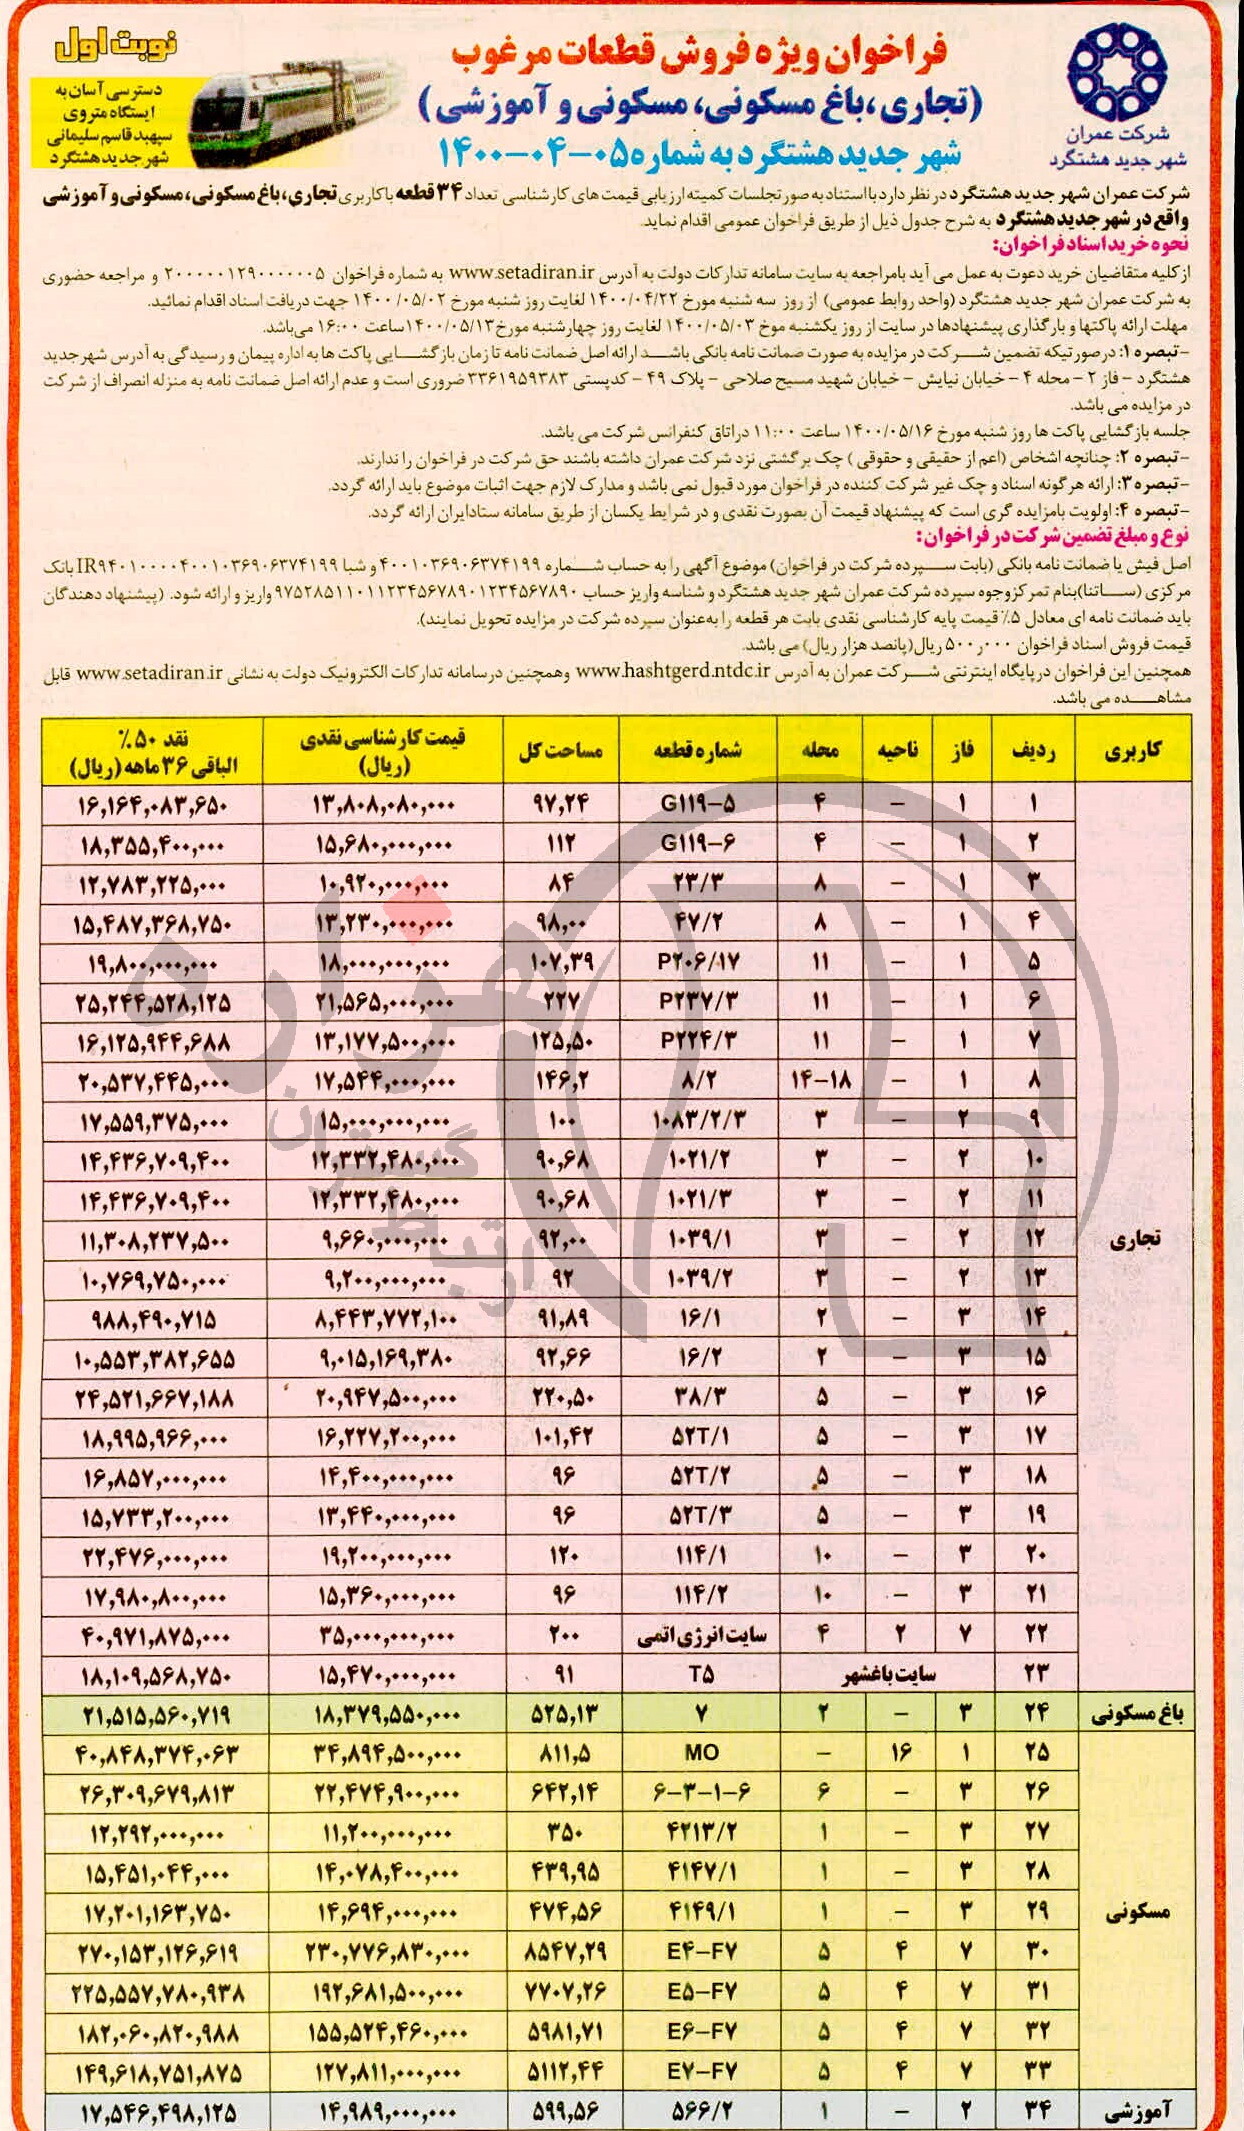 نوبت اول
دسترسی آسان به
ایستگاه متروی
سپهبد قاسم سلیمانی
شهر جدید هشتگرد
فراخوان ویژه فروش قطعات مرغوب
(تجاری، باغ مسکونی، مسکونی و آموزشی)
شهر جدید هشتگرد به شماره ۰۵-۰۴-۱۴۰۰
شرکت عمران
شهر جدید هشتگرد
شرکت عمران شهر جدید هشتگرد در نظر دارد با استناد به صورتجلسات کمیته ارزیابی قیمت های کارشناسی تعداد ۳۴ قطعه با کاربری تجاری، باغ مسکونی، مسکونی و آموزشی
واقع در شهر جدید هشتگرد به شرح جدول ذیل از طریق فراخوان عمومی اقدام نماید.
نحوه خرید اسناد فراخوان:
از کلیه متقاضیان خرید دعوت به عمل می آید با مراجعه به سایت سامانه تدارکات دولت به آدرس www.setadiran.ir به شماره فراخوان ۲۰۰۰۰۰۱۲۹۰۰۰۰۰۰۵ و مراجعه حضوری
به شرکت عمران شهر جدید هشتگرد (واحد روابط عمومی) از روز سه شنبه مورخ ۱۴۰۰/۰۴/۲۲ لغایت روز شنبه مورخ ۱۴۰۰/۰۵/۰۲ جهت دریافت اسناد اقدام نمائید.
مهلت ارائه پاکتها و بارگذاری پیشنهادها در سایت از روز یکشنبه موخ ۱۴۰۰/۰۵/۰۳ لغایت روز چهارشنبه مورخ ۱۴۰۰/۰۵/۱۳ ساعت ۱۶:۰۰ می‌باشد.
-تبصره ۱: در صورتیکه تضمین شرکت در مزایده به صورت ضمانت نامه بانکی باشد ارائه اصل ضمانت نامه تا زمان بازگشایی پاکت ها به اداره پیمان و رسیدگی به آدرس شهر جدید
هشتگرد - فاز ۲ - محله ۴ - خیابان نیایش - خیابان شهید مسیح صلاحی - پلاک ۴۹ - کدپستی ۳۳۶۱۹۵۹۳۸۳ ضروری است و عدم ارائه اصل ضمانت نامه به منزله انصراف از شرکت
در مزایده می باشد.
جلسه بازگشایی پاکت ها روز شنبه مورخ ۱۴۰۰/۰۵/۱۶ ساعت ۱۱:۰۰ در اتاق کنفرانس شرکت می باشد.
-تبصره ۲: چنانچه اشخاص (اعم از حقیقی و حقوقی) چک برگشتی نزد شرکت عمران داشته باشند حق شرکت در فراخوان را ندارند.
-تبصره ۳: ارائه هرگونه اسناد و چک غیر شرکت کننده در فراخوان مورد قبول نمی باشد و مدارک لازم جهت اثبات موضوع باید ارائه گردد.
-تبصره ۴: اولویت با مزایده گری است که پیشنهاد قیمت آن بصورت نقدی و در شرایط یکسان از طریق سامانه ستاد ایران ارائه گردد.
نوع و مبلغ تضمین شرکت در فراخوان:
اصل فیش یا ضمانت نامه بانکی (بابت سپرده شرکت در فراخوان) موضوع آگهی را به حساب شماره ۴۰۰۱۰۳۶۹۰۶۳۷۴۱۹۹ و شبا IR۹۴۰۱۰۰۰۰۴۰۰۱۰۳۶۹۰۶۳۷۴۱۹۹ بانک
مرکزی (ساتنا) بنام تمرکز وجوه سپرده شرکت عمران شهر جدید هشتگرد و شناسه واریز حساب ۹۷۵۲۸۵۱۱۰۱۱۲۳۴۵۶۷۸۹۰۱۲۳۴۵۶۷۸۹۰ واریز و ارائه شود. (پیشنهاد دهندگان
باید ضمانت نامه ای معادل ۵٪ قیمت پایه کارشناسی نقدی بابت هر قطعه را به‌عنوان سپرده شرکت در مزایده تحویل نمایند).
قیمت فروش اسناد فراخوان ۵۰۰٫۰۰۰ ریال (پانصد هزار ریال) می باشد.
همچنین این فراخوان در پایگاه اینترنتی شرکت عمران به آدرس www.hashtgerd.ntdc.ir وهمچنین در سامانه تدارکات الکترونیک دولت به نشانی www.setadiran.ir قابل
مشاهده می باشد.
کاربری ردیف فاز ناحیه محله شماره قطعه مساحت کل قیمت کارشناسی نقدی (ریال) نقد ۵۰٪ الباقی ۳۶ ماهه (ریال)
تجاری
۱ ۱ - ۴ G۱۱۹-۵ ۹۷,۲۴ ۱۳,۸۰۸,۰۸۰,۰۰۰ ۱۶,۱۶۴,۰۸۳,۶۵۰
۲ ۱ - ۴ G۱۱۹-۶ ۱۱۲ ۱۵,۶۸۰,۰۰۰,۰۰۰ ۱۸,۳۵۵,۴۰۰,۰۰۰
۳ ۱ - ۸ ۲۳/۳ ۸۴ ۱۰,۹۲۰,۰۰۰,۰۰۰ ۱۲,۷۸۳,۲۲۵,۰۰۰
۴ ۱ - ۸ ۴۷/۲ ۹۸,۰۰ ۱۳,۲۳۰,۰۰۰,۰۰۰ ۱۵,۴۸۷,۳۶۸,۷۵۰
۵ ۱ - ۱۱ P۲۰۶/۱۷ ۱۰۷,۳۹ ۱۸,۰۰۰,۰۰۰,۰۰۰ ۱۹,۸۰۰,۰۰۰,۰۰۰
۶ ۱ - ۱۱ P۲۳۷/۳ ۲۲۷ ۲۱,۵۶۵,۰۰۰,۰۰۰ ۲۵,۲۴۴,۵۲۸,۱۲۵
۷ ۱ - ۱۱ P۲۲۴/۳ ۱۲۵,۵۰ ۱۳,۱۷۷,۵۰۰,۰۰۰ ۱۶,۱۲۵,۹۴۴,۶۸۸
۸ ۱ - ۱۴-۱۸ ۸/۲ ۱۴۶,۲ ۱۷,۵۴۴,۰۰۰,۰۰۰ ۲۰,۵۳۷,۴۴۵,۰۰۰
۹ ۲ - ۳ ۱۰۸۳/۲/۳ ۱۰۰ ۱۵,۰۰۰,۰۰۰,۰۰۰ ۱۷,۵۵۹,۳۷۵,۰۰۰
۱۰ ۲ - ۳ ۱۰۲۱/۲ ۹۰,۶۸ ۱۲,۳۳۲,۴۸۰,۰۰۰ ۱۴,۴۳۶,۷۰۹,۴۰۰
۱۱ ۲ - ۳ ۱۰۲۱/۳ ۹۰,۶۸ ۱۲,۳۳۲,۴۸۰,۰۰۰ ۱۴,۴۳۶,۷۰۹,۴۰۰
۱۲ ۲ - ۳ ۱۰۳۹/۱ ۹۲,۰۰ ۹,۶۶۰,۰۰۰,۰۰۰ ۱۱,۳۰۸,۲۳۷,۵۰۰
۱۳ ۲ - ۳ ۱۰۳۹/۲ ۹۲ ۹,۲۰۰,۰۰۰,۰۰۰ ۱۰,۷۶۹,۷۵۰,۰۰۰
۱۴ ۳ - ۲ ۱۶/۱ ۹۱,۸۹ ۸,۴۴۳,۷۷۲,۱۰۰ ۹۸۸,۴۹۰,۷۱۵
۱۵ ۳ - ۲ ۱۶/۲ ۹۲,۶۶ ۹,۰۱۵,۱۶۹,۳۸۰ ۱۰,۵۵۳,۳۸۲,۶۵۵
۱۶ ۳ - ۵ ۳۸/۳ ۲۲۰,۵۰ ۲۰,۹۴۷,۵۰۰,۰۰۰ ۲۴,۵۲۱,۶۶۷,۱۸۸
۱۷ ۳ - ۵ ۵۲T/۱ ۱۰۱,۴۲ ۱۶,۲۲۷,۲۰۰,۰۰۰ ۱۸,۹۹۵,۹۶۶,۰۰۰
۱۸ ۳ - ۵ ۵۲T/۲ ۹۶ ۱۴,۴۰۰,۰۰۰,۰۰۰ ۱۶,۸۵۷,۰۰۰,۰۰۰
۱۹ ۳ - ۵ ۵۲T/۳ ۹۶ ۱۳,۴۴۰,۰۰۰,۰۰۰ ۱۵,۷۳۳,۲۰۰,۰۰۰
۲۰ ۳ - ۱۰ ۱۱۴/۱ ۱۲۰ ۱۹,۲۰۰,۰۰۰,۰۰۰ ۲۲,۴۷۶,۰۰۰,۰۰۰
۲۱ ۳ - ۱۰ ۱۱۴/۲ ۹۶ ۱۵,۳۶۰,۰۰۰,۰۰۰ ۱۷,۹۸۰,۸۰۰,۰۰۰
۲۲ ۷ ۲ ۴ سایت انرژی اتمی ۲۰۰ ۳۵,۰۰۰,۰۰۰,۰۰۰ ۴۰,۹۷۱,۸۷۵,۰۰۰
۲۳ سایت باغشهر T۵ ۹۱ ۱۵,۴۷۰,۰۰۰,۰۰۰ ۱۸,۱۰۹,۵۶۸,۷۵۰
باغ مسکونی ۲۴ ۳ - ۲ ۷ ۵۲۵,۱۳ ۱۸,۳۷۹,۵۵۰,۰۰۰ ۲۱,۵۱۵,۵۶۰,۷۱۹
مسکونی
۲۵ ۱ ۱۶ - MO ۸۱۱,۵ ۳۴,۸۹۴,۵۰۰,۰۰۰ ۴۰,۸۴۸,۳۷۴,۰۶۳
۲۶ ۳ - ۶ ۶-۳-۱-۶ ۶۴۲,۱۴ ۲۲,۴۷۴,۹۰۰,۰۰۰ ۲۶,۳۰۹,۶۷۹,۸۱۳
۲۷ ۳ - ۱ ۴۲۱۳/۲ ۳۵۰ ۱۱,۲۰۰,۰۰۰,۰۰۰ ۱۲,۲۹۲,۰۰۰,۰۰۰
۲۸ ۳ - ۱ ۴۱۴۷/۱ ۴۳۹,۹۵ ۱۴,۰۷۸,۴۰۰,۰۰۰ ۱۵,۴۵۱,۰۴۴,۰۰۰
۲۹ ۳ - ۱ ۴۱۴۹/۱ ۴۷۴,۵۶ ۱۴,۶۹۴,۰۰۰,۰۰۰ ۱۷,۲۰۱,۱۶۳,۷۵۰
۳۰ ۷ ۴ ۵ E۴-F۷ ۸۵۴۷,۲۹ ۲۳۰,۷۷۶,۸۳۰,۰۰۰ ۲۷۰,۱۵۳,۱۲۶,۶۱۹
۳۱ ۷ ۴ ۵ E۵-F۷ ۷۷۰۷,۲۶ ۱۹۲,۶۸۱,۵۰۰,۰۰۰ ۲۲۵,۵۵۷,۷۸۰,۹۳۸
۳۲ ۷ ۴ ۵ E۶-F۷ ۵۹۸۱,۷۱ ۱۵۵,۵۲۴,۴۶۰,۰۰۰ ۱۸۲,۰۶۰,۸۲۰,۹۸۸
۳۳ ۷ ۴ ۵ E۷-F۷ ۵۱۱۲,۴۴ ۱۲۷,۸۱۱,۰۰۰,۰۰۰ ۱۴۹,۶۱۸,۷۵۱,۸۷۵
آموزشی ۳۴ ۲ - ۱ ۵۶۶/۲ ۵۹۹,۵۶ ۱۴,۹۸۹,۰۰۰,۰۰۰ ۱۷,۵۴۶,۴۹۸,۱۲۵
هزاره
ارتباط
گستران